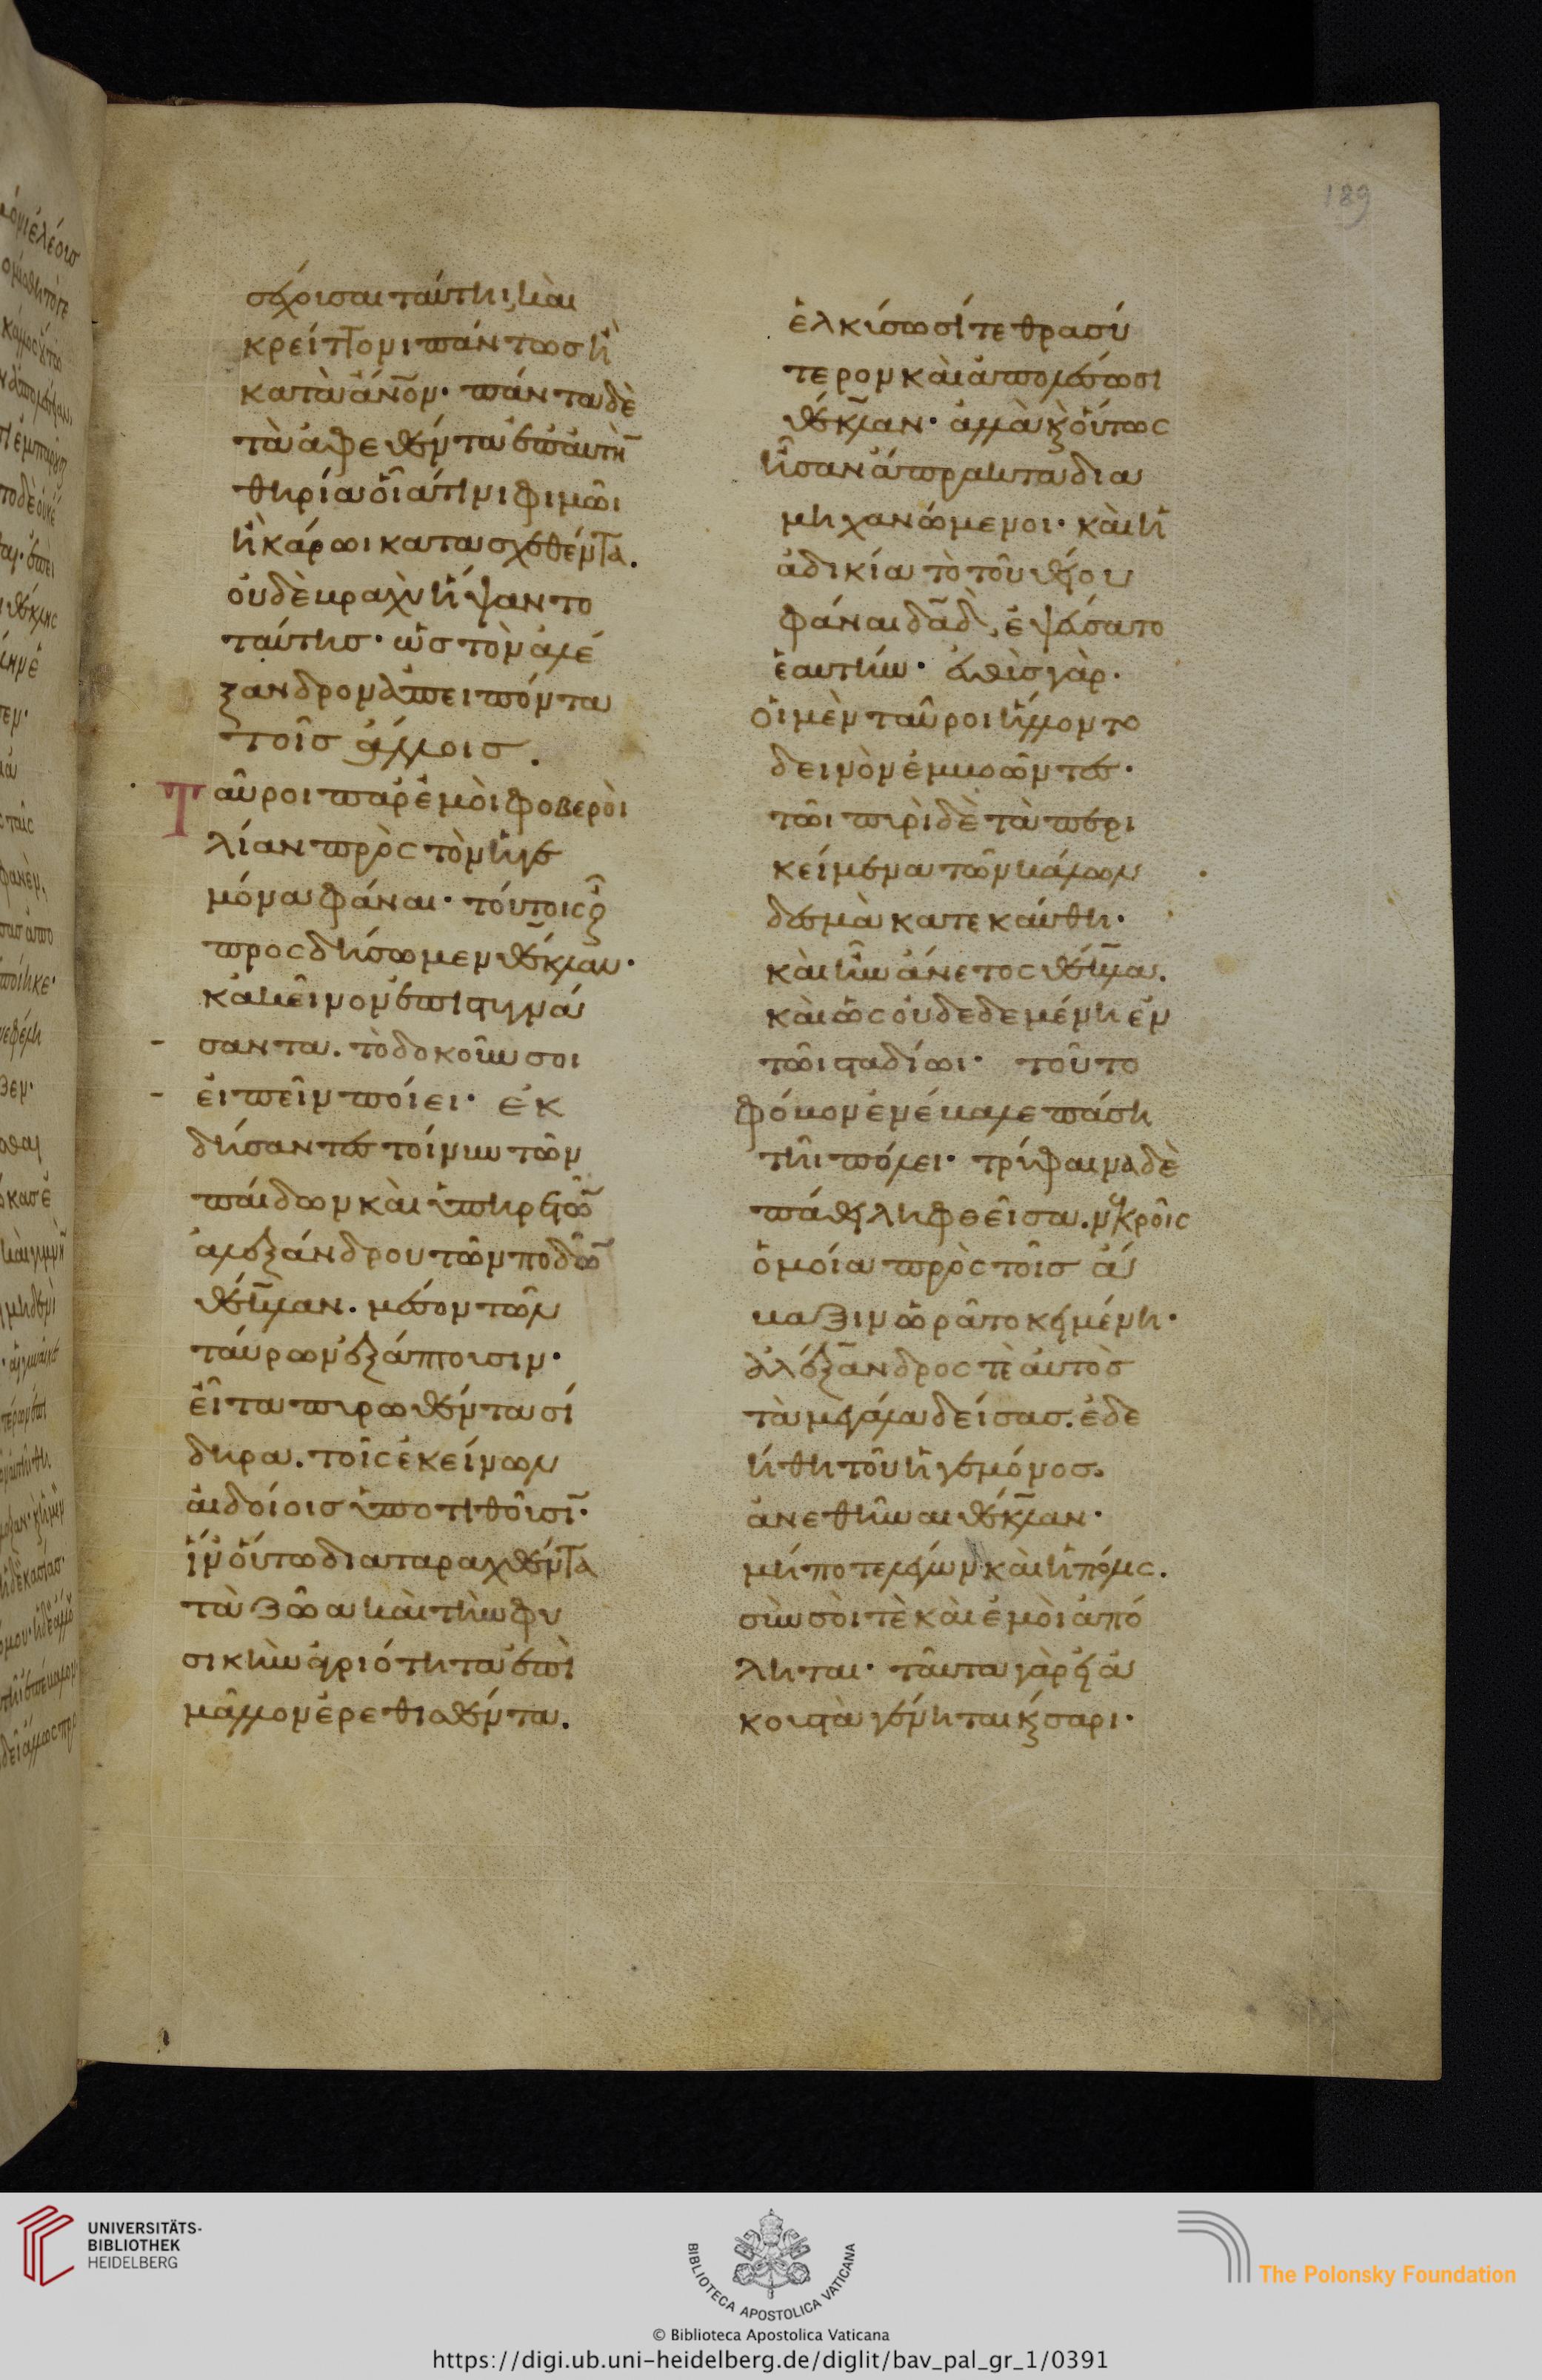 189
σχόισαι ταύτηι, καὶ
κρείττονι πάντως ἢ
κατὰ ἄν̅ον· πάντα δὲ
τὰ ἀφεθέντα ἐπ' αὐτὴ̅
θηρία οἷά τινι φιμῶι
ἢ κάρωι κατασχεθέντα.
οὐδὲ βραχὺ ἥψαντο
ταύτησ· ὡσ τὸν ἀλέ
ξανδρον ἀπειπόντα
τοῖσ ἄλλοισ.
Ταῦροι παρ' ἐμοὶ φοβεροὶ
λίαν πρὸς τὸν ἡγε
μόνα φάναι· τούτοις
προσδήσωμεν θέκλαν·
κἀκεῖνον ἐπιστυγνά
σαντα. τὸ δοκοῦν σοι
εἰπεῖν ποίει· ἐκ
δήσαντεσ τοίνυν τῶν
παίδων καὶ ὑπηρετῶ̅
ἀλεξάνδρου τῶν ποδῶ̅
θέκλαν. μέσον τῶν
ταύρων ἐξάπτουσιν·
εἶτα πυρωθέντα σί
δηρα. τοῖς ἐκείνων
αἰδοίοισ ὑποτιθοῦσι̅·
ἵν' οὕτω διαταραχθέντα
τὰ ζῶα καὶ τὴν φυ
σικὴν ἀγριότητα ἐπὶ
μᾶλλον ἐρεθισθέντα.
ἑλκύσωσί τε θρασύ
τερον καὶ ἀπολέσωσι
θέκλαν· ἀλλὰ καὶ οὕτως
ἦσαν ἄπρακτα δια
μηχανώμενοι· καὶ ἡ
ἀδικία τὸ τοῦ θείου
φάναι δα̅δ, ἐψεύσατο
ἑαυτήν· εὐθὺσ γὰρ.
οἱ μὲν ταῦροι ἥλλοντο
δεινὸν ἐμμυκῶντεσ·
τῶι πυρὶ δὲ τὰ περι
κείμενα τῶν κάλων
δεσμὰ κατεκαύθη·
καὶ ἦν ἄνετος θέκλα.
καὶ ὡς οὐ δεδεμένη ἐν
τῶι σταδίωι· τοῦτο
φόβον ἐνέβαλε πάσηι
τῆι πόλει· τρύφαινα δὲ
πάθει ληφθεῖσα. νεκροῖς
ὁμοία πρὸς τοῖσ ἄ
βαξιν ὡρᾶτο κειμένη·
ἀλέξανδρος τὲ αὐτὸσ
τὰ μεγάλα δείσασ. ἐδε
ήθη τοῦ ἡγεμόνοσ.
ἀνεθῆναι θέκλαν·
μήποτε λέγων καὶ ἡ πόλις.
σὺν σοί τὲ καὶ ἐμοὶ ἀπό
ληται· ταῦτα γὰρ εἰ ἀ
κουστὰ γένηται καίσαρι·
UNIVERSITÄTS-
BIBLIOTHEK
HEIDELBERG
BIBLIOTECA APOSTOLICA VATICANA
The Polonsky Foundation
© Biblioteca Apostolica Vaticana
https://digi.ub.uni-heidelberg.de/diglit/bav_pal_gr_1/0391